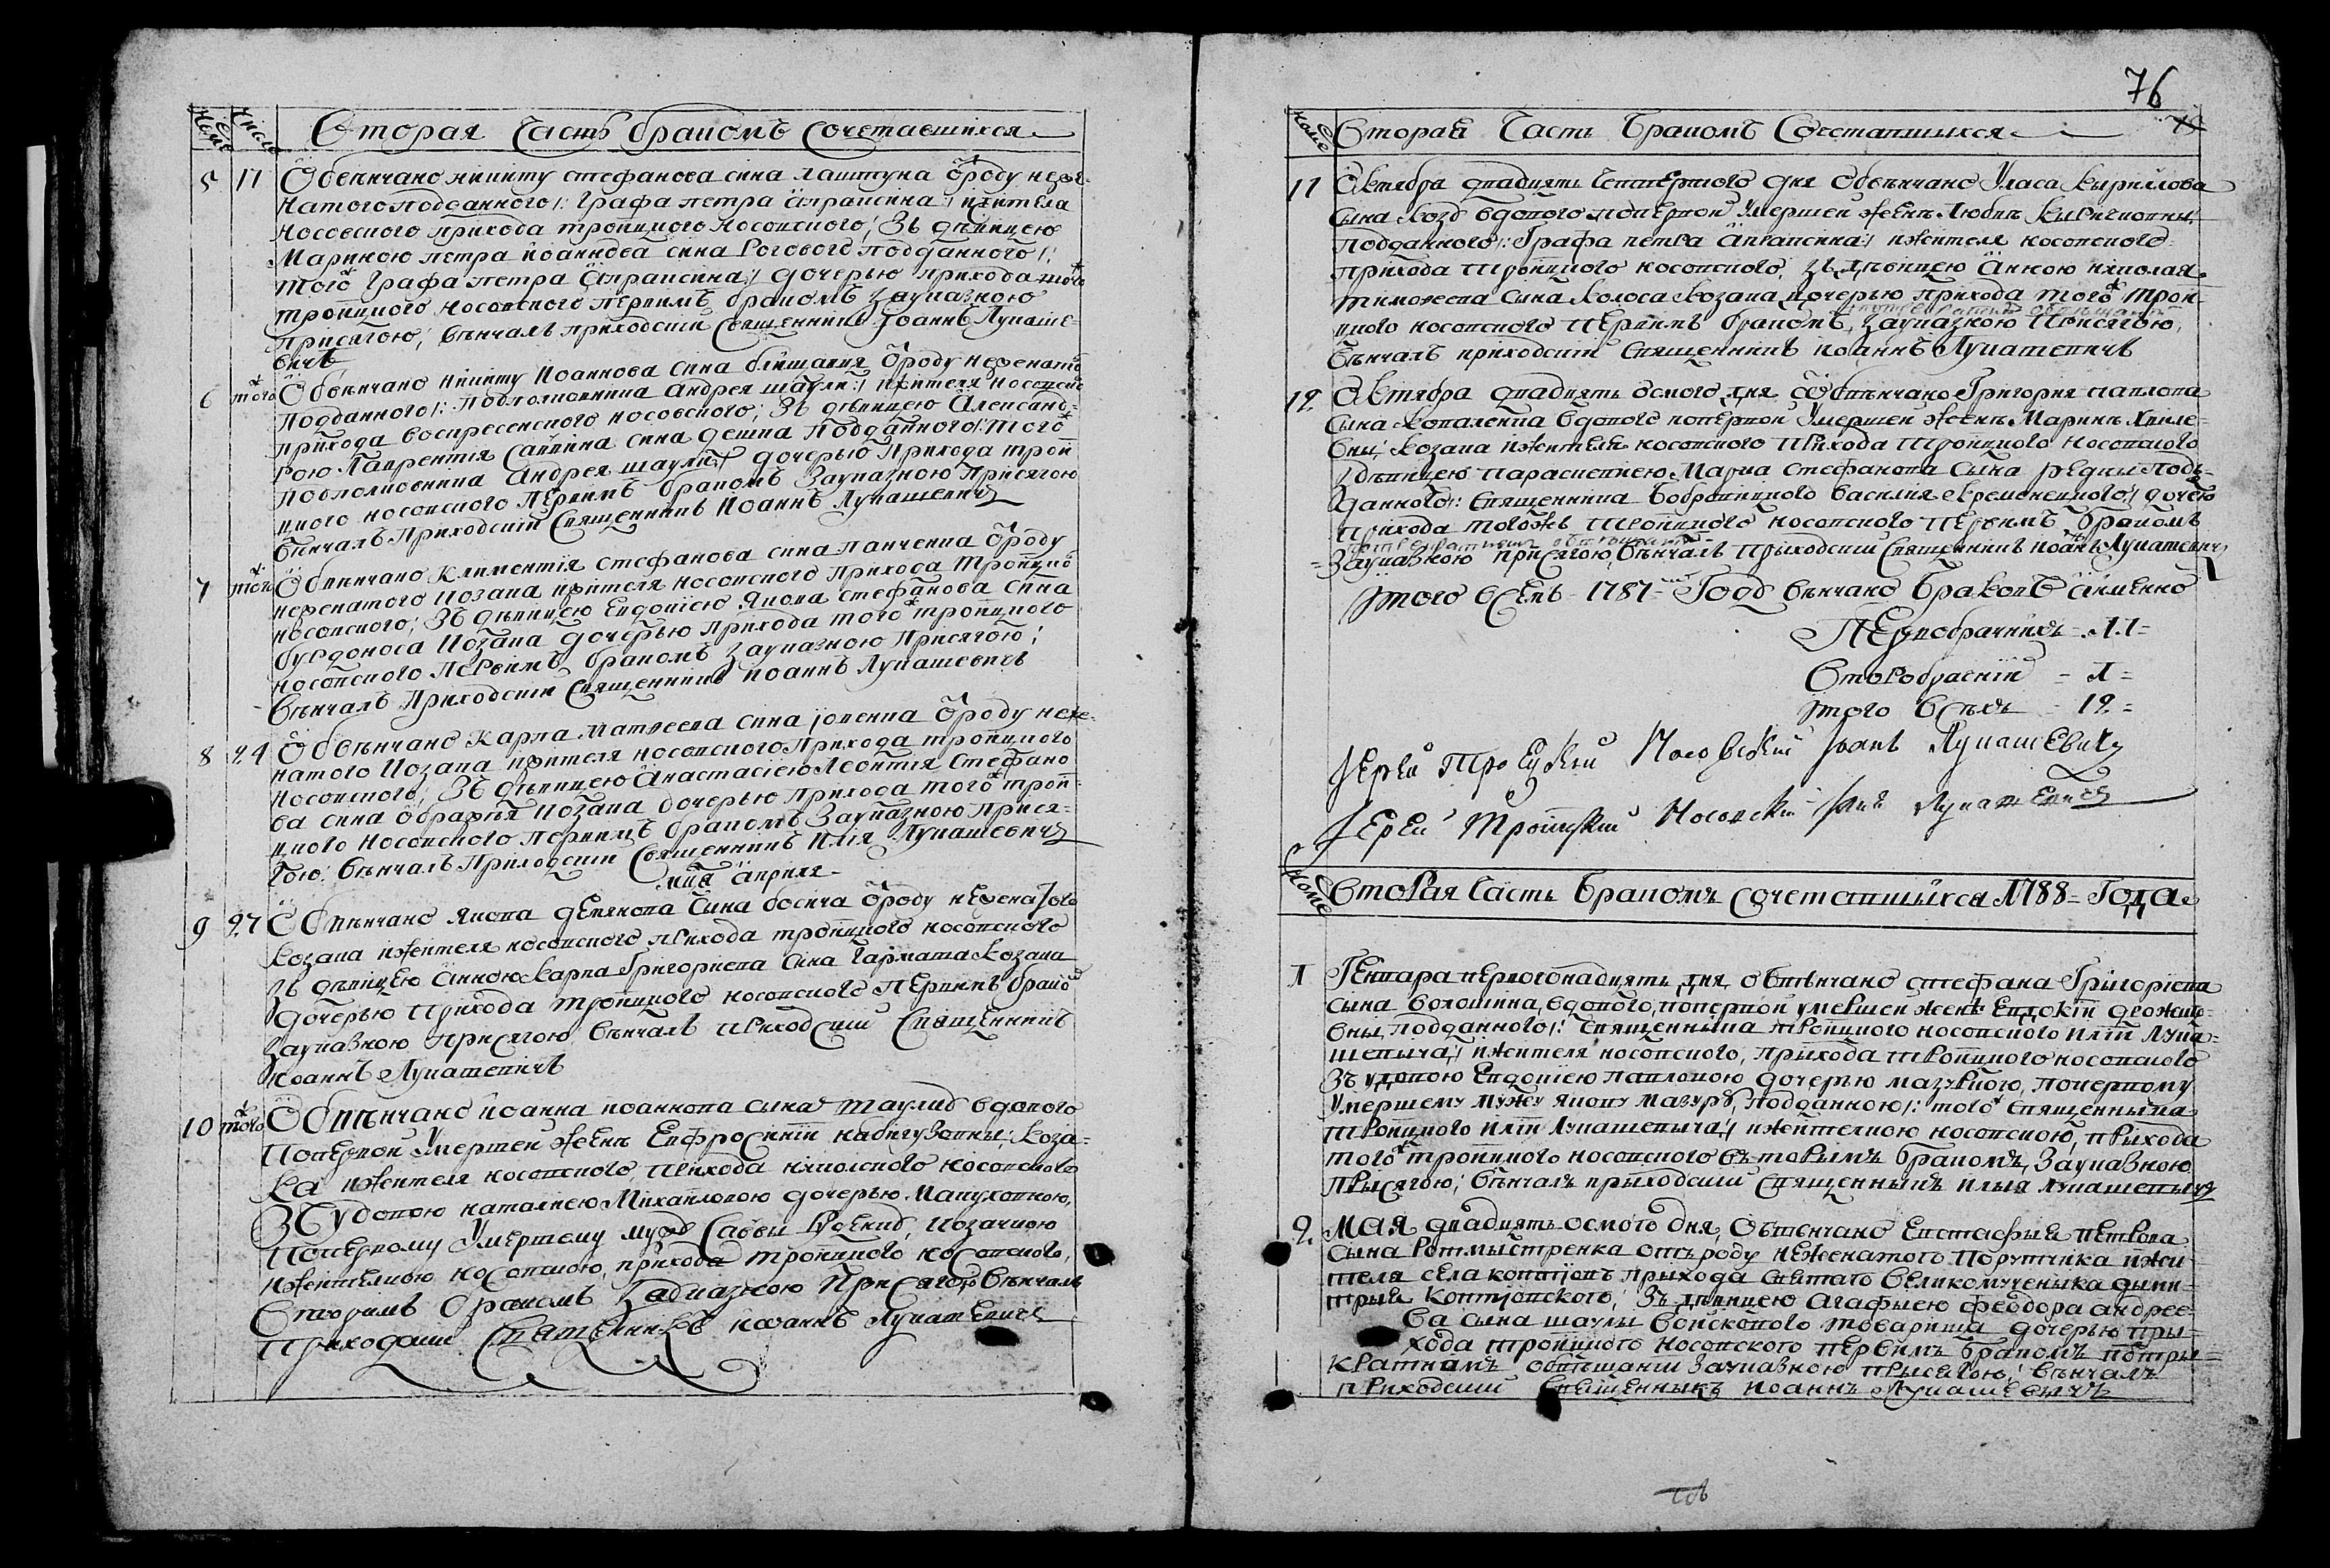 Номе Число Вторая Часть бракомъ Сочетавшихся
5 17 Обвѣнчано никиту стефанова сина лаштуна ѿроду неже-
натого подданного /: Графа петра апраксина :/ ижителя
носовского прихода троицкого носовского, Зъ дѣвицею
Мариною петра иоаннова сина Рогового подданного /:
того ж Графа петра апраксина :/ дочерью прихода того ж
троицкого носовского первимъ бракомъ Зауказною
присягою, вѣнчалъ приходский Священникъ Иоаннъ Лукаше-
вичъ
6 того ж Обвѣнчано никиту Иоаннова сина ѿроду неженато
подданного /: подполковника андрея шаули :/ жителя носовск
прихода воскресенского носовского, Зъ дѣвицею Александ-
рою Лаврентия сина подданного /: того ж
подполковника андрея шаули :/ дочерью Прихода трои
цкого носовского первимъ бракомъ Зауказною Присягою
Вѣнчалъ Приходский Священникъ Иоаннъ Лукашевичъ
7 того ж Обвѣнчано Климентия стефанова сина панченка ѿроду
неженатого козака жителя носовского прихода троицко
носовского, Зъ дѣвицею Евдокиею Якова стефанова сина
бурдоноса козака дочерью прихода того ж троицкого
носовского Первимъ бракомъ Зауказною Присягою;
Вѣнчалъ Приходский Священникъ иоаннъ Лукашевичъ
8 24 Обвѣнчано Карпа матвеева сина ѿроду неже-
натого козака жителя носовского прихода троицкого
носовского, Зъ дѣвицею Анастасиею Леонтия Стефано
ва сина козака дочерью прихода того ж трои-
цкого носовского первимъ бракомъ Зауказною Прися-
гою; Вѣнчалъ Приходский Священникъ Илия Лукашевичъ
мца априля
9 27 Обвѣнчано якова демянова сина босича ѿроду неженатого
козака ижителя носовского прихода троицкого носовского
зъ дѣвицею анною карпа Григориева сина Гармата козака
дочерью прихода троицкого носовского первимъ брако
Зауказною присягою вѣнчалъ приходский Священникъ
иоаннъ Лукашевичъ
10 того ж Обвѣнчано иоанна иоаннова сина вдового
попервой умершей женѣ Евфросинии коза-
ка ижителя носовского прихода николского носовского
Зъ удовою наталиею Михайловою дочерью Мапуховною,
попервому умершему мужѣ Саввы козачкою
ижителкою носовскою прихода троицкого носовского,
Вторимъ бракомъ Заѹказною Присягою вѣнчалъ
приходский Священникъ иоаннъ Лукашевичъ
76
Номе Вторая Часть Бракомъ Сочетавшихся
11 Октября двадцять Четвертого дня Обвѣнчано Уласа кырилова
сына вдового попервой Умершей женѣ Любвѣ
подданного /: Графа петра апраксина :/ ижителя носовского
прихода троицкого носовского, зъ дѣвицею анною николая
тимофеева сына колоса козака дочерью прихода того ж трои-
цкого носовского первимъ бракомъ, зауказною присягою,
вѣнчалъ приходский священникъ иоаннъ Лукашевичъ
12 Октября двадцять осмого дня Обвѣнчано Григория павлова
сына коваленка вдового попервой Умершей женѣ Маринѣ
козака ижителя носовского прихода троицкого носовского
здѣвицею параскевиею Марка стефанова сына редки подъ-
данного /: священника василия :/ дочею
прихода тогожъ троицкого носовского первимъ бракомъ
Заѹказною присягою, вѣнчалъ приходский Священникъ иоаннъ Лукашевичъ
Итого Всемъ 1787 Годѣ вѣнчано Браковъ аименно
Первобрачнихъ - 11 =
Второбрачний - 1 =
Итого всѣхъ - 12 =
Иерей Троецкий Носовский Иоанъ Лукашевичъ
Иерей Троицкий Носовский Лукашевичъ
Номе Вторая Часть Бракомъ сочетавшихся 1788 = Года
1 Генвара первогонадцять дня обвѣнчано стефана Григориева
сына волошина, вдового, попервой умершей женѣ Евдокии
вны подданного /: священныка троицкого носовского илии Лука-
шевыча :/ ижителя носовского, прыхода троицкого носовского
Зъ удовою Евдокиею павловою дочерью мазуркою, попервому
Умершему мужу якову мазурѣ, подданною /: того ж священныка
троицкого илии Лукашевыча :/ ижителкою носовскою, прыхода
того ж троицкого носовского въторымъ бракомъ, Зауказною
Прысягою; вѣнчалъ прыходский священныкъ илыя лукашевычъ
2. Мая двадцять осмого дня, Обвѣнчано Евстафыя петрова
Сына Ротмыстренка отъ роду неженатого Порутчика ижи-
теля села коптѣовъ прыхода святого великомученыка дыми-
трыя коптѣовского, Зъ дѣвицею агафыею феодора андрее-
ва сына шаулы войскового товарища дочерью пры-
хода троицкого носовского первимъ бракомъ потры-
кратномъ обвѣщании Заѹказною прысягою; вѣнчалъ
прыходский священныкъ иоаннъ Лукашевычъ